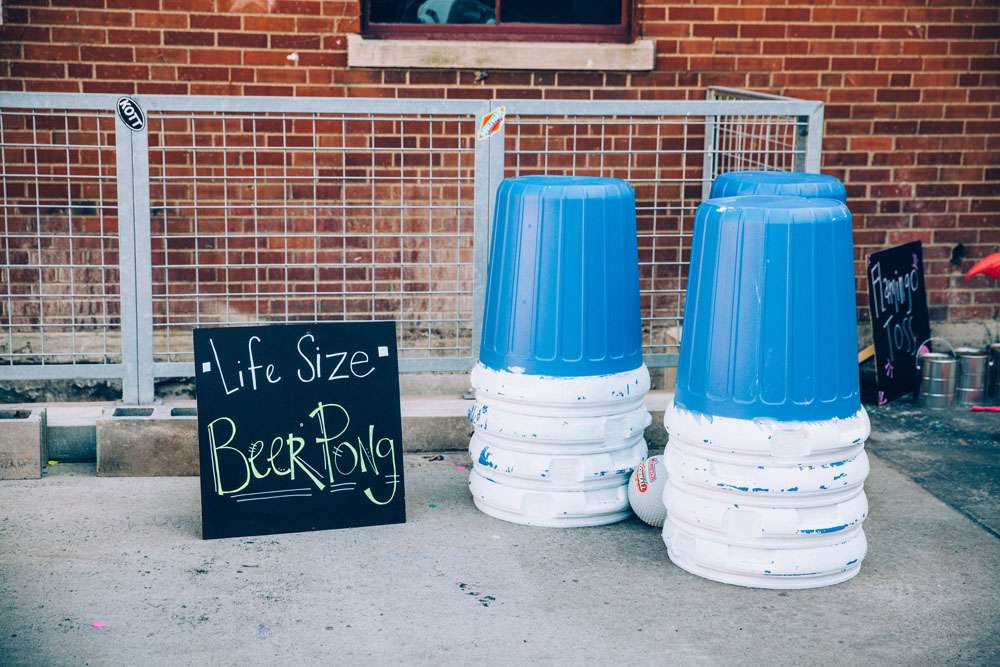 KOTT
Life Size
Beer Pong
Flamingo
Toss